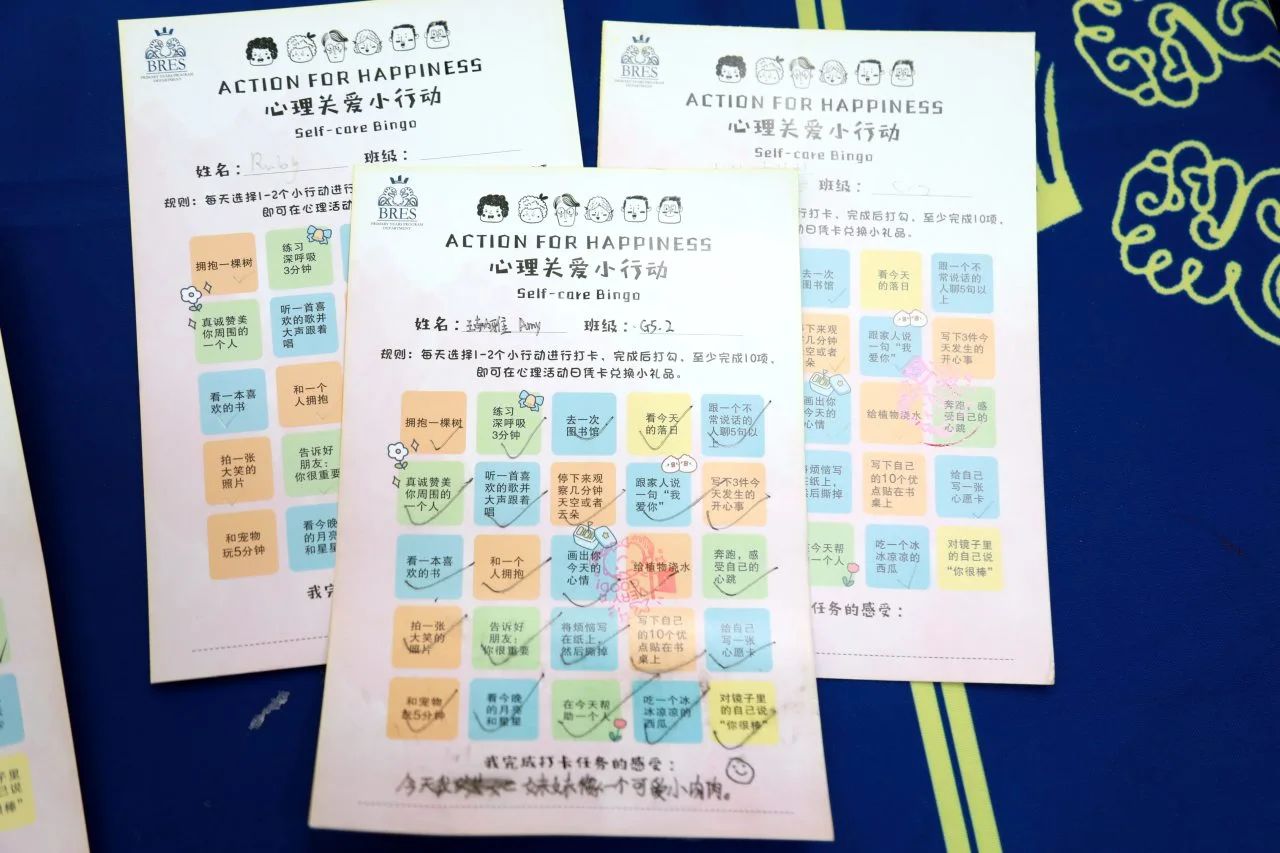 BRES
PRIMARY YEARS PROGRAM
DEPARTMENT
ACTION FOR HAPPINESS
心理关爱小行动
Self-care Bingo
姓名：Ruby 班级：
规则：每天选择1-2个小行动进行
即可在心理活动
拥抱一棵树
练习
深呼吸
3分钟
真诚赞美
你周围的
一个人
听一首喜
欢的歌并
大声跟着
唱
看一本喜
欢的书
和一个
人拥抱
拍一张
大笑的
照片
告诉好
朋友：
你很重要
和宠物
玩5分钟
看今晚
的月亮
和星星
BRES
PRIMARY YEARS PROGRAM
DEPARTMENT
ACTION FOR HAPPINESS
心理关爱小行动
Self-care Bingo
班级：
行打卡，完成后打勾，至少完成10项，
动日凭卡兑换小礼品。
去一次
图书馆
看今天
的落日
跟一个不
常说话的
人聊5句以
上
下来观
几分钟
空或者
朵
跟家人说
一句“我
爱你”
写下3件今
天发生的
开心事
画出你
今天的
心情
给植物浇水
奔跑，感
受自己的
心跳
将烦恼写
在纸上，
然后撕掉
写下自己
的10个优
点贴在书
桌上
给自己
写一张
心愿卡
在今天帮
一个人
吃一个冰
冰凉凉的
西瓜
对镜子里
的自己说
“你很棒”
任务的感受：
BRES
PRIMARY YEARS PROGRAM
DEPARTMENT
ACTION FOR HAPPINESS
心理关爱小行动
Self-care Bingo
姓名： Amy 班级：G5.2
规则：每天选择1-2个小行动进行打卡，完成后打勾，至少完成10项，
即可在心理活动日凭卡兑换小礼品。
拥抱一棵树
练习
深呼吸
3分钟
去一次
图书馆
看今天
的落日
跟一个不
常说话的
人聊5句以
上
真诚赞美
你周围的
一个人
听一首喜
欢的歌并
大声跟着
唱
停下来观
察几分钟
天空或者
云朵
跟家人说
一句“我
爱你”
写下3件今
天发生的
开心事
看一本喜
欢的书
和一个
人拥抱
画出你
今天的
心情
给植物浇水
奔跑，感
受自己的
心跳
拍一张
大笑的
照片
告诉好
朋友：
你很重要
将烦恼写
在纸上，
然后撕掉
写下自己
的10个优
点贴在书
桌上
给自己
写一张
心愿卡
和宠物
玩5分钟
看今晚
的月亮
和星星
在今天帮
助一个人
吃一个冰
冰凉凉的
西瓜
对镜子里
的自己说
“你很棒”
我完成打卡任务的感受：
今天我 妹妹像一个可爱小肉肉。